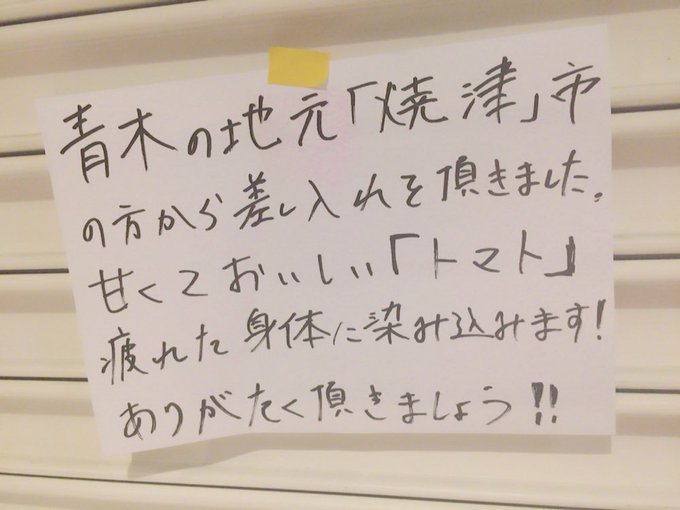 青木の地元「焼津」市
の方から差し入れを頂きました。
甘くておいしい「トマト」
疲れた身体に染み込みます!
ありがたく頂きましょう!!